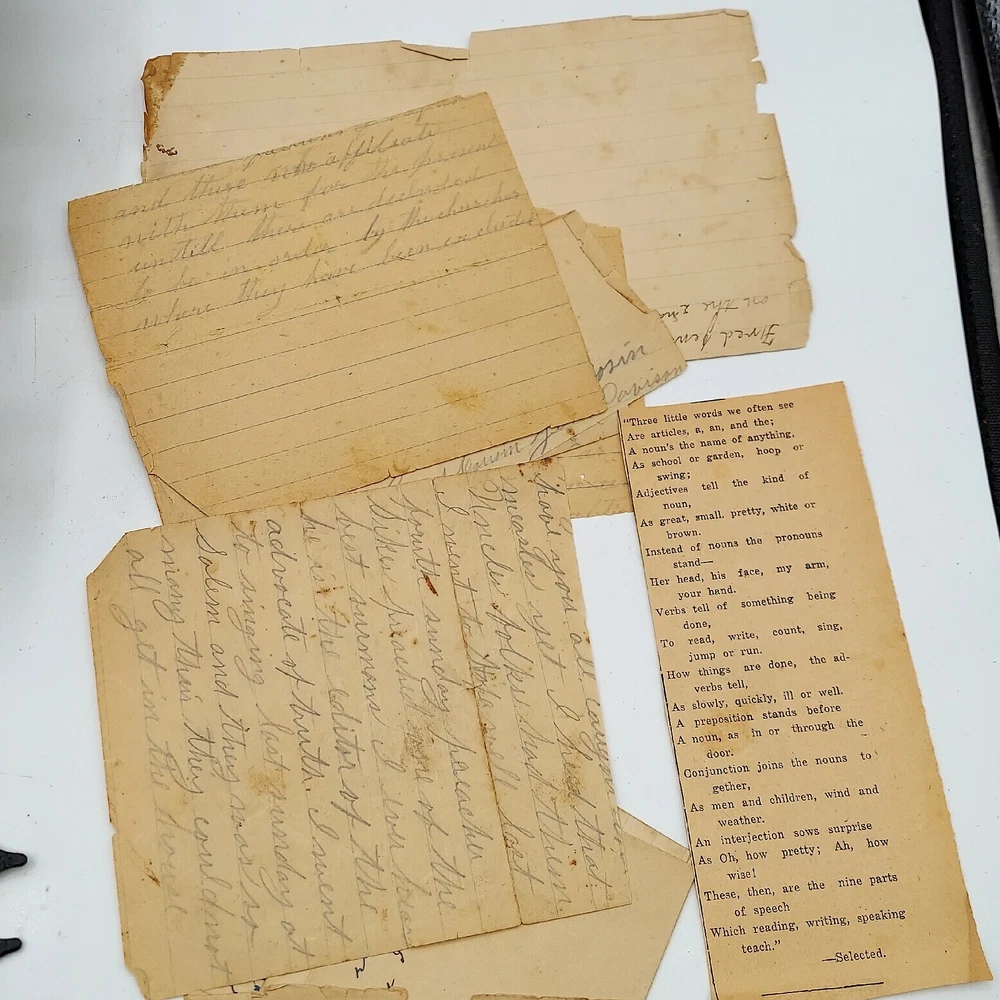 and those who affiliate
with them for the present
untill these are decided
to be in order by the churches
where they have been exclude
on the 2nd
Fired
osin
Davison
have you all caugh
measles yet I heard that
Uncle folks had them
I went to Hopewell last
Fourth sunday preache
Sikes preached one of the
best surmons I ever hear
he is the editor of the
advocate of truth. I went
to singing last sunday at
Salem and they was so
many their they could not
all get in the house
"Three little words we often see
Are articles, a, an, and the;
A noun's the name of anything,
As school or garden, hoop or
swing;
Adjectives tell the kind of
noun,
As great, small, pretty, white or
brown.
Instead of nouns the pronouns
stand—
Her head, his face, my arm,
your hand.
Verbs tell of something being
done,
To read, write, count, sing,
jump or run.
How things are done, the ad-
verbs tell,
As slowly, quickly, ill or well.
A preposition stands before
A noun, as in or through the
door.
Conjunction joins the nouns to
gether,
As men and children, wind and
weather.
An interjection sows surprise
As Oh, how pretty; Ah, how
wise!
These, then, are the nine parts
of speech
Which reading, writing, speaking
teach."
—Selected.